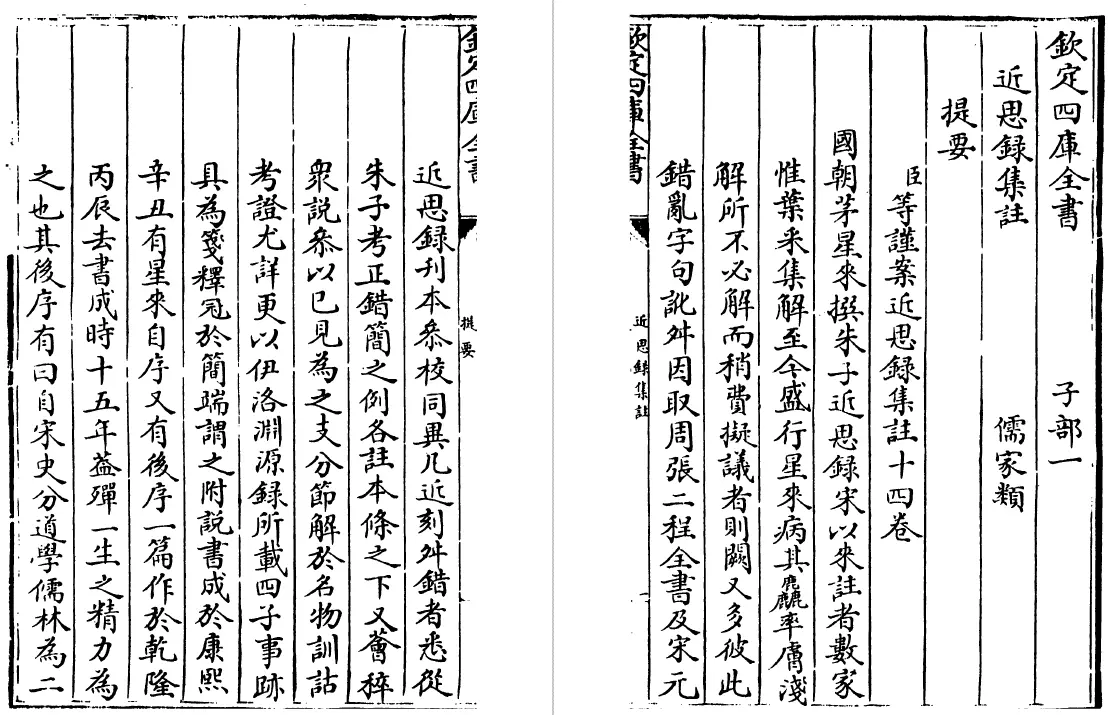 欽定四庫全書 子部一
近思録集註 儒家類
提要
臣等謹案近思録集註十四卷
國朝茅星來撰朱子近思録宋以來註者數家
惟葉采集解至今盛行星來病其麤率膚淺
解所不必解而稍費擬議者則闕又多彼此
錯亂字句訛舛因取周張二程全書及宋元
欽定四庫全書
近思録集註
提要
近思録刊本叅校同異凡近刻舛錯者悉從
朱子考正錯簡之例各註本條之下又薈稡
衆説叅以已見為之支分節解於名物訓詁
考證尤詳更以伊洛淵源録所載四子事跡
具為箋釋冠於簡端謂之附説書成於康熙
辛丑有星來自序又有後序一篇作於乾隆
丙辰去書成時十五年葢殫一生之精力為
之也其後序有曰自宋史分道學儒林為二